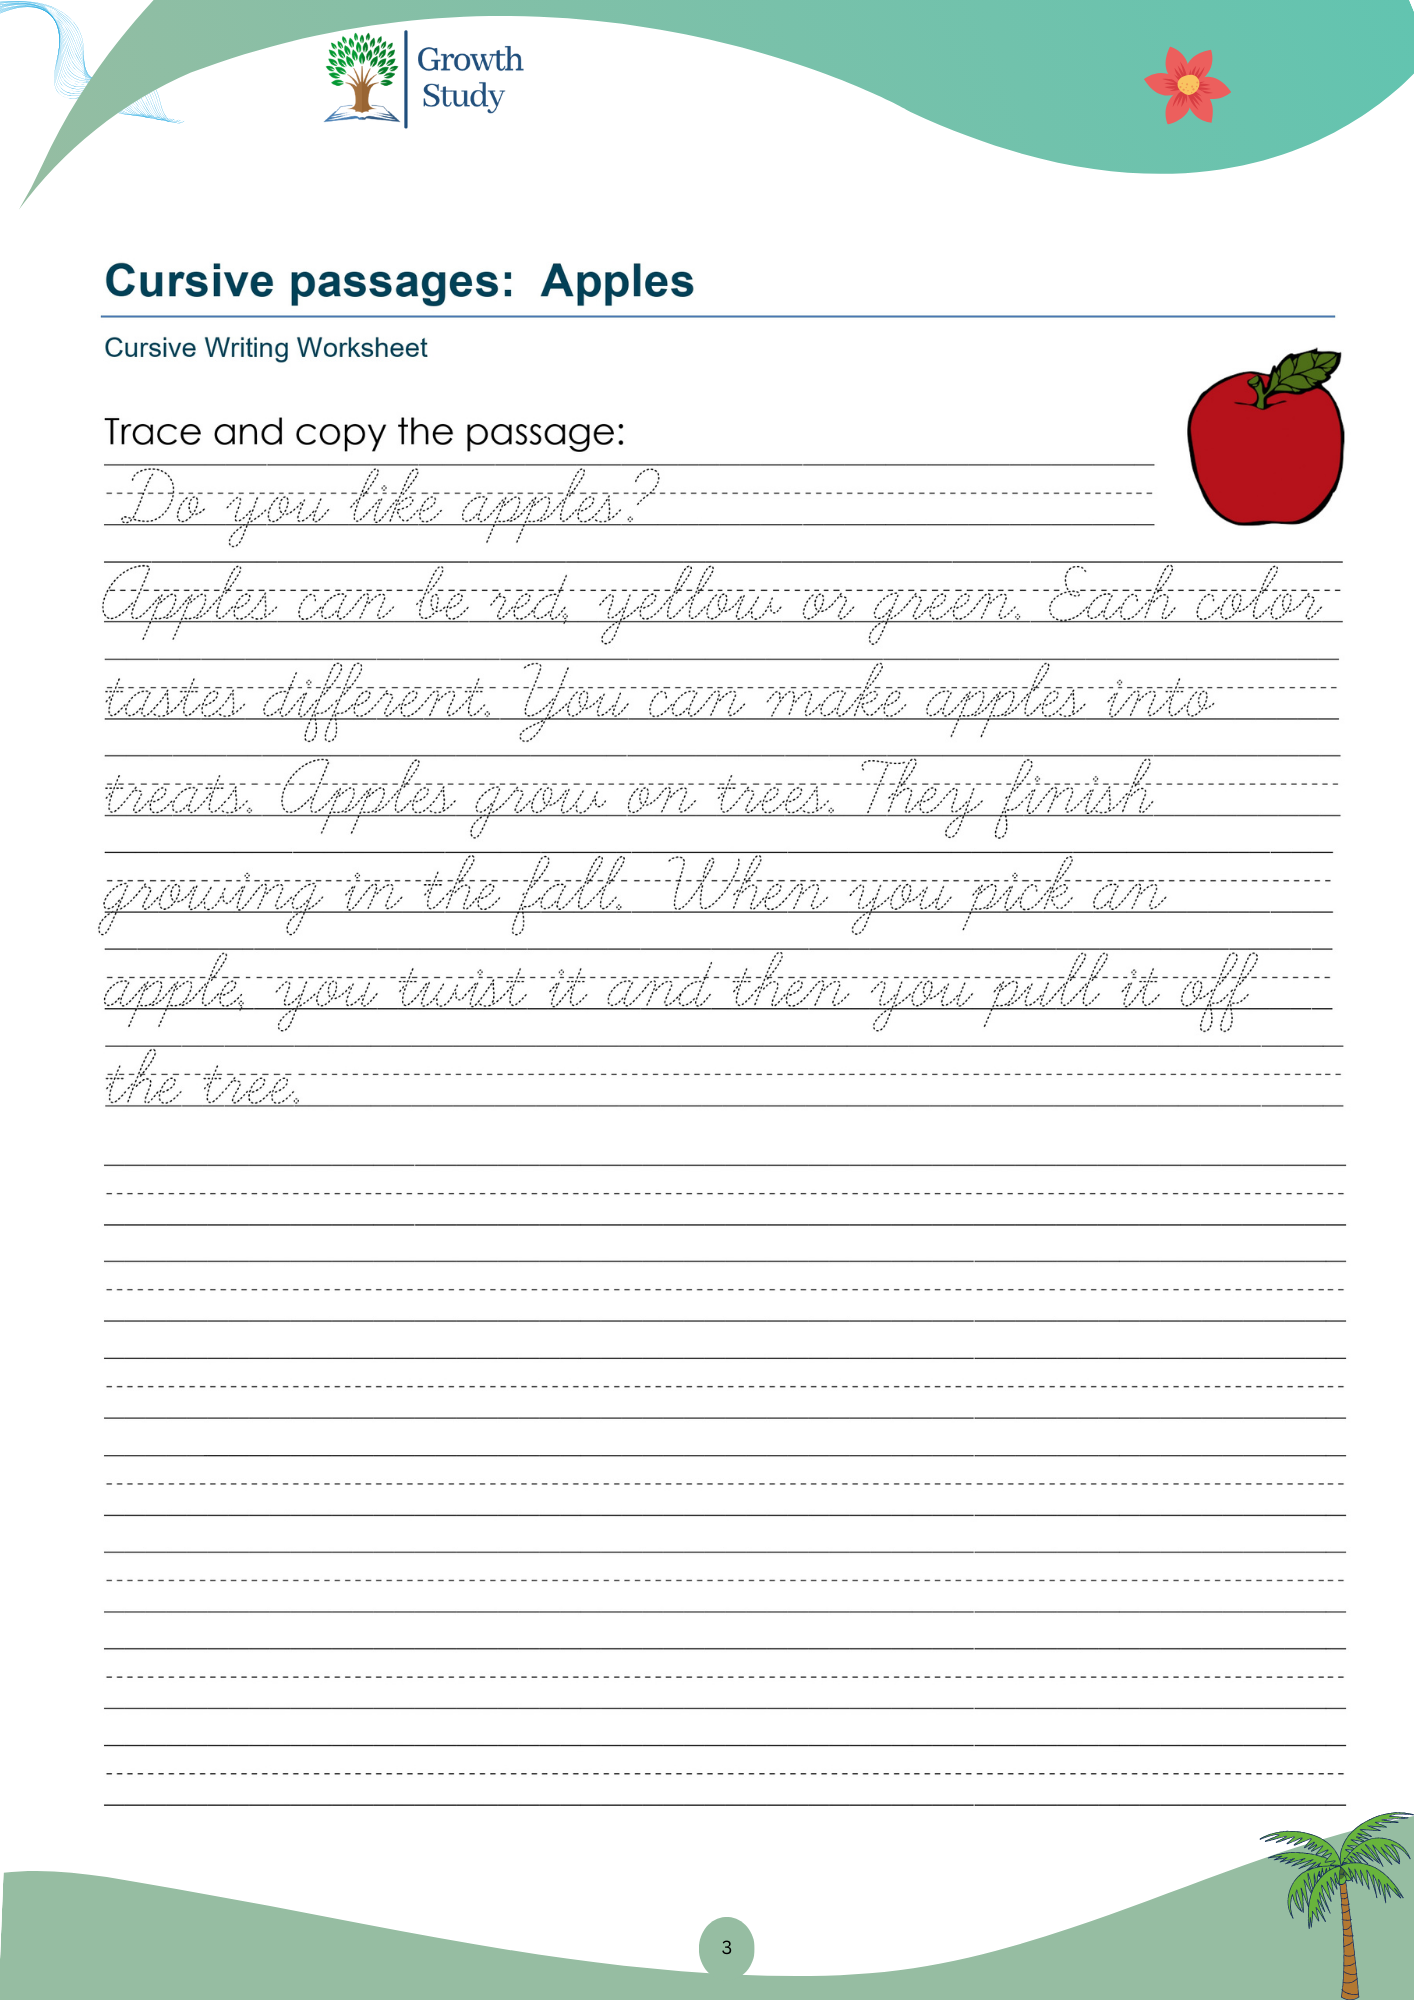 Growth
Study
Cursive passages: Apples
Cursive Writing Worksheet
Trace and copy the passage:
Do you like apples?
Apples can be red, yellow or green. Each color
tastes different. You can make apples into
treats. Apples grow on trees. They finish
growing in the fall. When you pick an
apple, you twist it and then you pull it off
the tree.
3